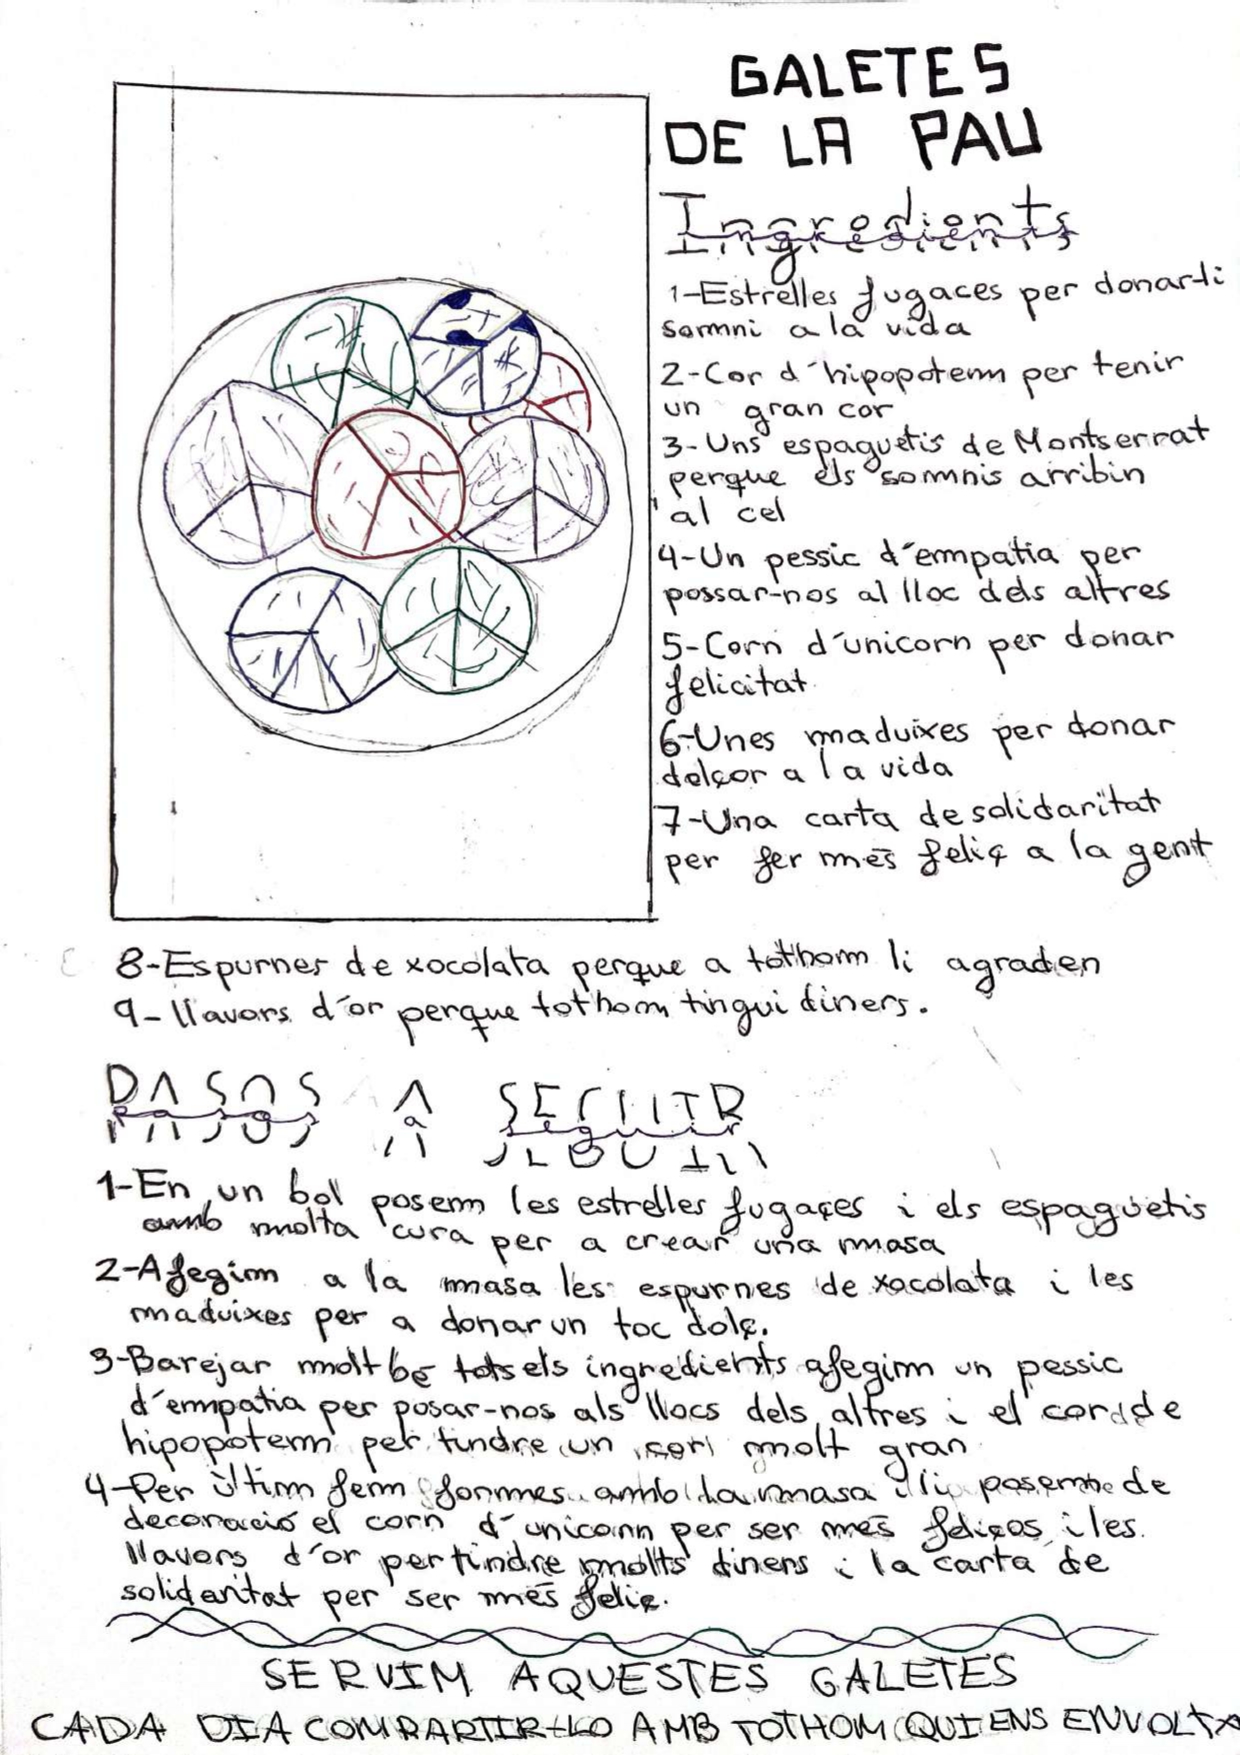 GALETES
DE LA PAU
Ingredients
1-Estrelles fugaces per donar-li
somni a la vida
2-Cor d'hipopotem per tenir
un gran cor
3-Uns espaguetis de Montserrat
perque els somnis arribin
al cel
4-Un pessic d'empatia per
possar-nos al lloc dels altres
5-Corn d'unicorn per donar
felicitat
6-Unes maduixes per donar
dolçor a la vida
7-Una carta de solidaritat
per fer més feliç a la gent
8-Espurnes de xocolata perque a tothom li agraden
9-llavors d'or perque tothom tingui diners.
PASOS A SEGUIR
1-En un bol posem les estrelles fugaçes i els espaguetis
amb molta cura per a crear una masa
2-Afegim a la masa les espurnes de xocolata i les
maduixes per a donar un toc dolç.
3-Barejar molt bé tots els ingredients afegim un pessic
d'empatia per posar-nos als llocs dels altres i el cor de
hipopotem per tindre un cor molt gran
4-Per últim fem formes amb la masa i li posem de
decoració el corn d'unicorn per ser més feliços i les
llavors d'or per tindre molts diners i la carta de
solidaritat per ser més feliç.
SERVIM AQUESTES GALETES
CADA DIA COMPARTIR-LO AMB TOTHOM QUI ENS ENVOLTA